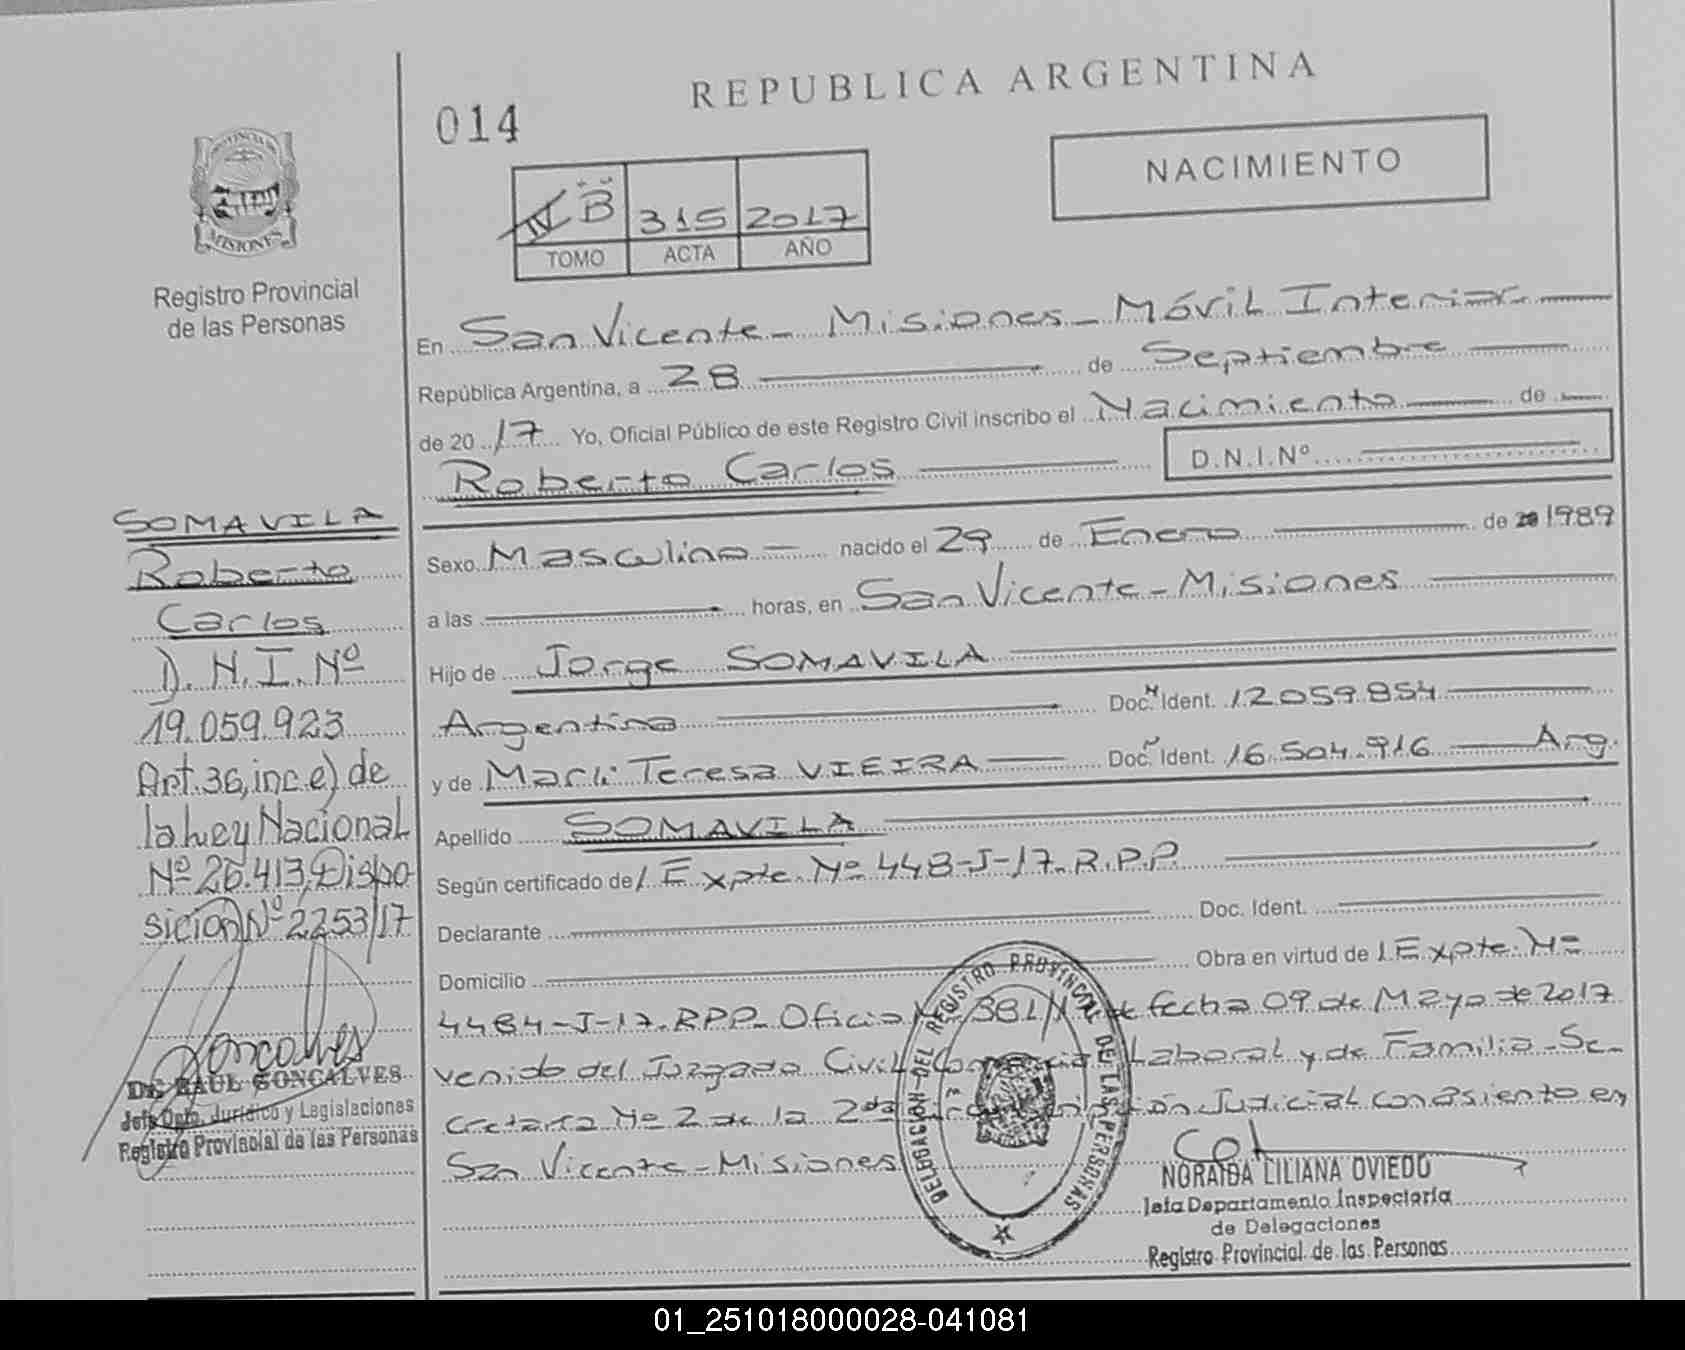 REPUBLICA ARGENTINA
014
NACIMIENTO
PROVINCIA DE
MISIONES
Registro Provincial
de las Personas
IV B 315 2017
TOMO ACTA AÑO
En San Vicente - Misiones - Móvil Interior
República Argentina, a 28 de Septiembre
de 20 17 Yo, Oficial Público de este Registro Civil inscribo el Nacimiento de
Roberto Carlos D.N.I.Nº
Sexo Masculino nacido el 29 de Enero de 1989
a las horas, en San Vicente - Misiones
Hijo de Jorge SOMAVILA
Argentino Doc. Ident. 12.059.854
y de Marli Teresa VIEIRA Doc. Ident. 16.504.916 Arg.
Apellido SOMAVILA
Según certificado de / Expte. Nº 448-J-17.R.P.P.
Declarante Doc. Ident.
Domicilio Obra en virtud de / Expte. Nº
4484-J-17. RPP. Oficio fecha 09 de Mayo de 2017
venido del Juzgado Civil, Comercial Laboral y de Familia - Se-
cretaria Nº 2 de la 2da Circunscripción Judicial con asiento en
San Vicente - Misiones
SOMAVILA
Roberto
Carlos
D.N.I.Nº
19.059.923
Art. 36, inc. e) de
la Ley Nacional
Nº 26.413, Dispo
sición Nº 2253/17
Goncalves
Dr. RAUL GONCALVES
Jefe Dpto. Jurídico y Legislaciones
Registro Provincial de las Personas
DELEGACIÓN DEL REGISTRO PROVINCIAL DE LAS PERSONAS
NORAIDA LILIANA OVIEDO
Jefa Departamento Inspectoría
de Delegaciones
Registro Provincial de las Personas
01_251018000028-041081